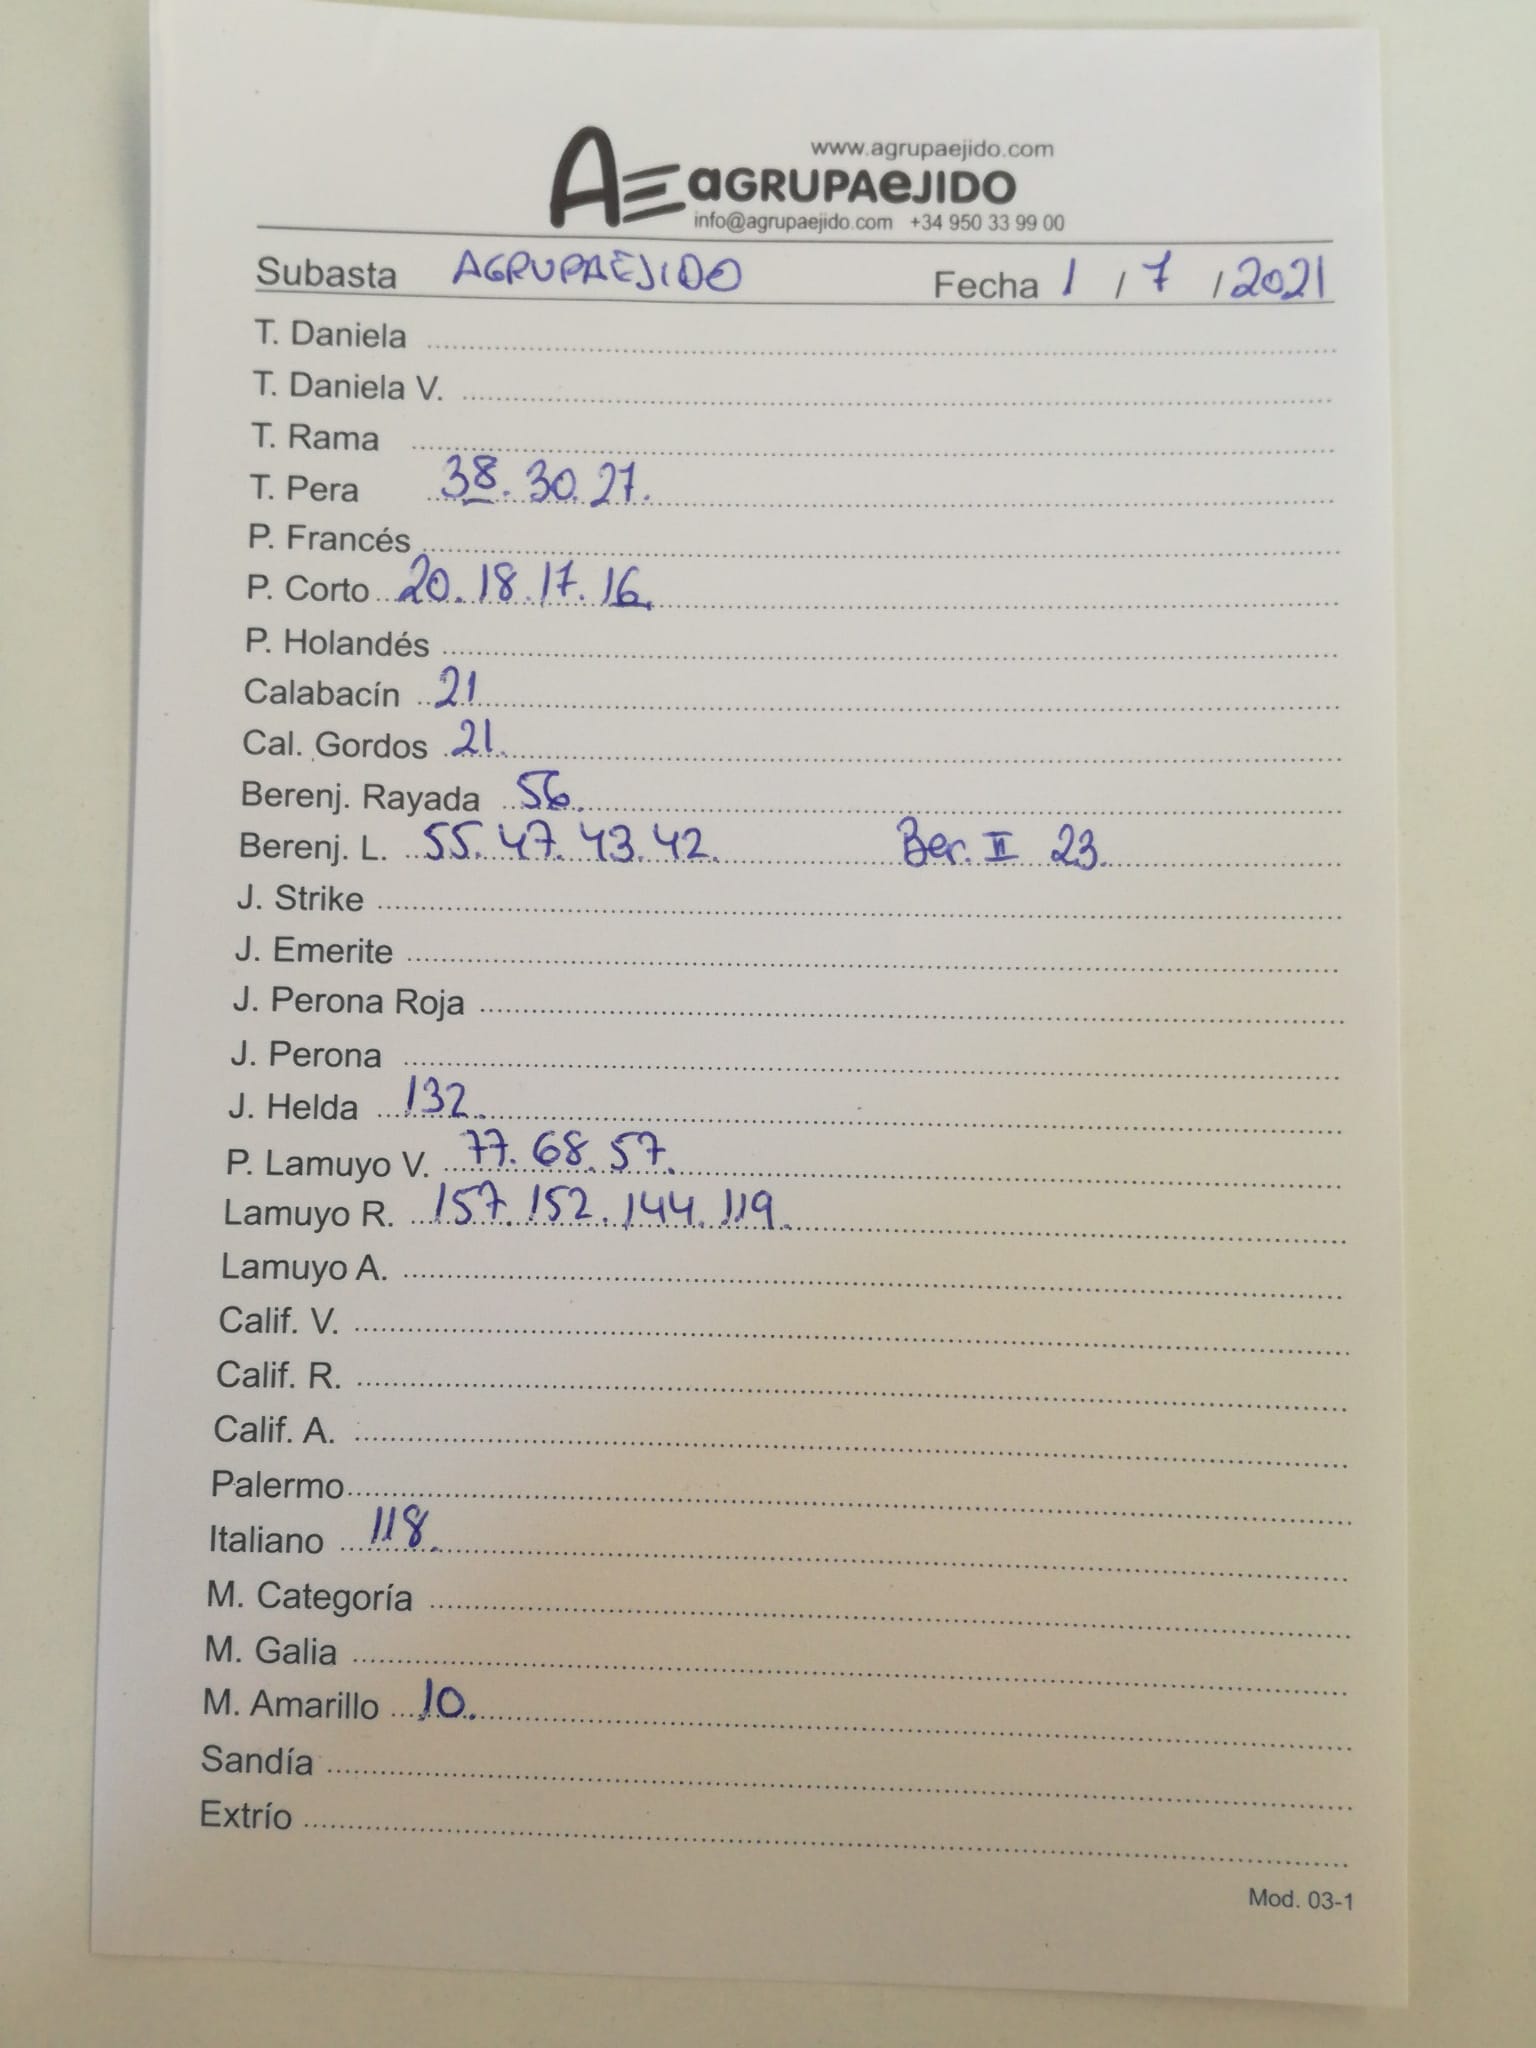 www.agrupaejido.com
AE aGRUPAeJIDO
info@agrupaejido.com +34 950 33 99 00
Subasta AGRUPAEJIDO Fecha 1 / 7 / 2021
T. Daniela
T. Daniela V.
T. Rama
T. Pera 38. 30. 27.
P. Francés
P. Corto 20. 18. 17. 16.
P. Holandés
Calabacín 21
Cal. Gordos 21.
Berenj. Rayada 56.
Berenj. L. 55. 47. 43. 42. Ber. II 23.
J. Strike
J. Emerite
J. Perona Roja
J. Perona
J. Helda 132.
P. Lamuyo V. 77. 68. 57.
Lamuyo R. 157. 152. 144. 119.
Lamuyo A.
Calif. V.
Calif. R.
Calif. A.
Palermo
Italiano 118.
M. Categoría
M. Galia
M. Amarillo 10.
Sandía
Extrío
Mod. 03-1